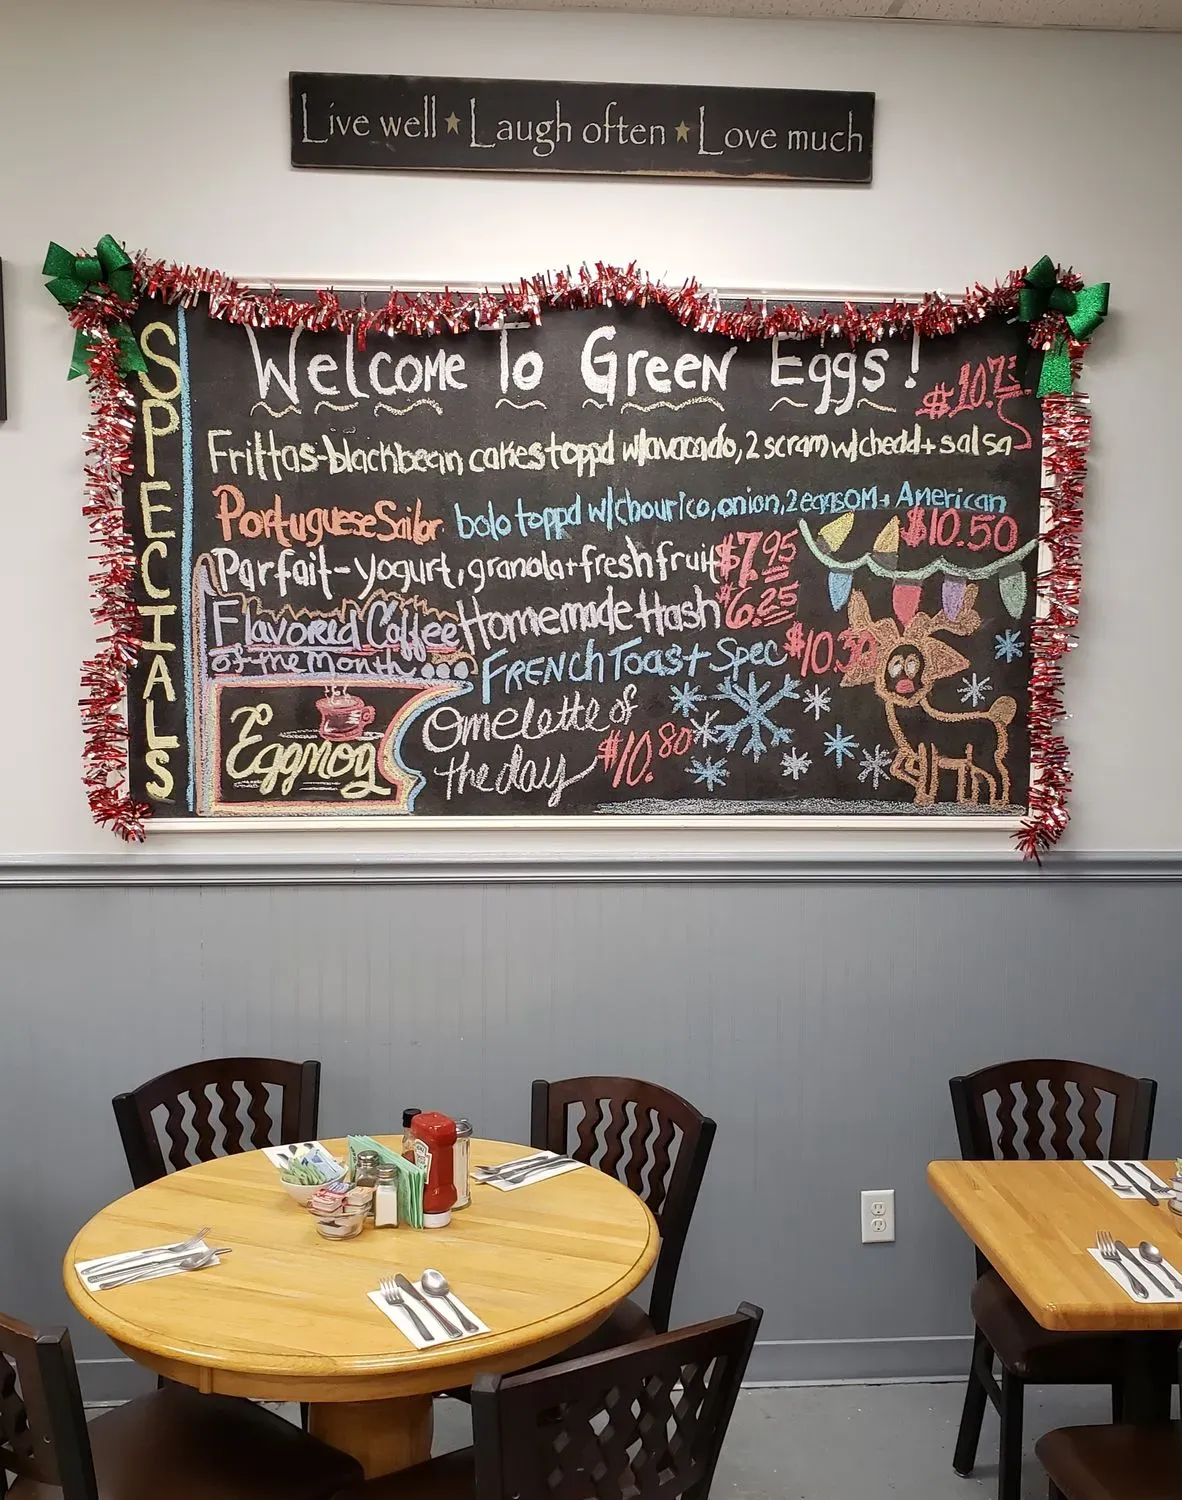 Live well ★ Laugh often ★ Love much
SPECIALS
Welcome To Green Eggs!
Frittas-blackbean cakes toppd w/avacado, 2 scram w/chedd + salsa
Portuguese Sailor bolo toppd w/chourico, onion, 2 eggs OM + American $10.50
Parfait-yogurt, granola+fresh fruit $7.95
Homemade Hash $6.25
Flavored Coffee
of the Month...
Eggnog
French Toast Spec $10.30
Omelette of
the day $10.80